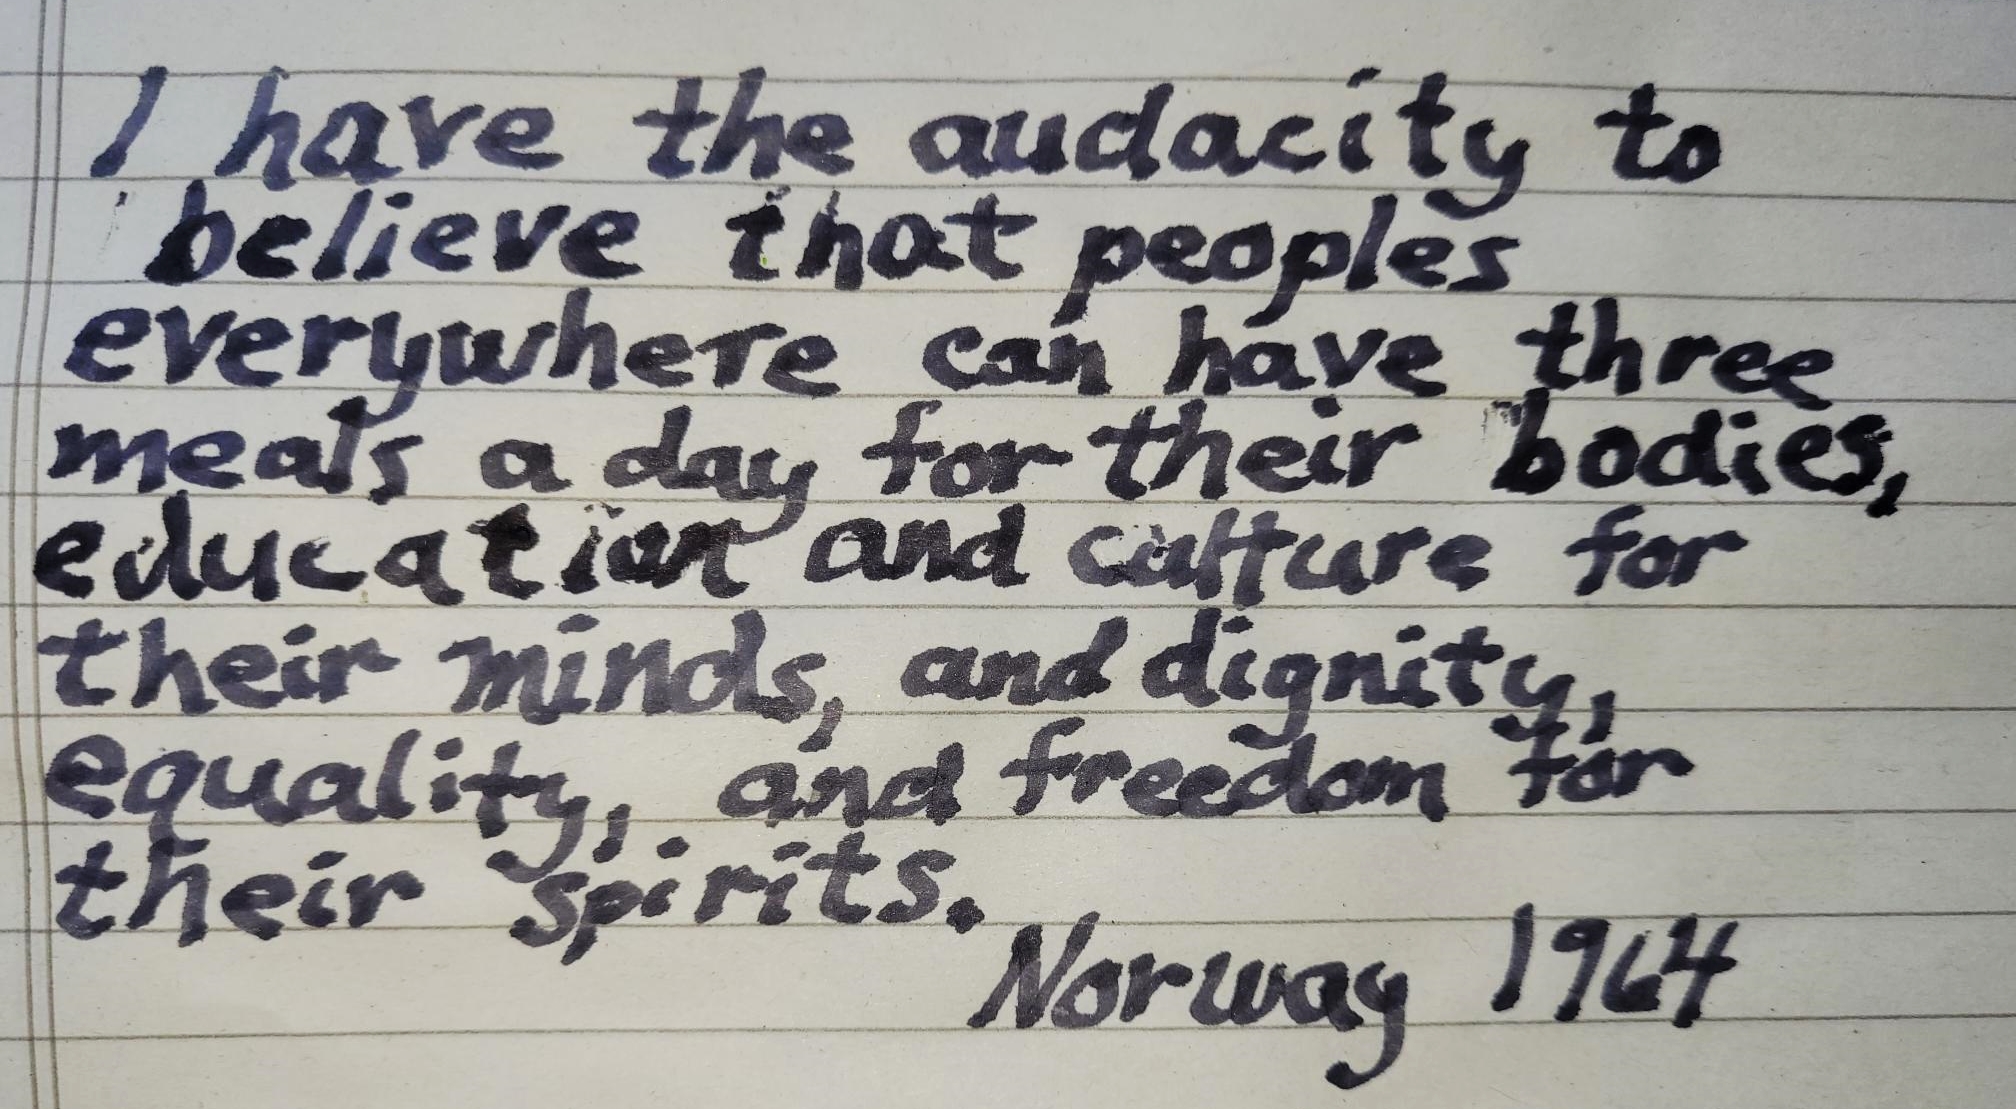 I have the audacity to
believe that peoples
everywhere can have three
meals a day for their bodies,
education and culture for
their minds, and dignity,
equality, and freedom for
their spirits.
Norway 1964